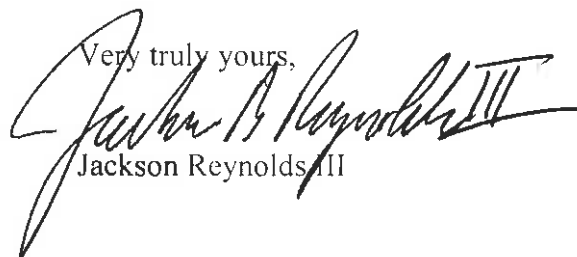 Very truly yours,
Jackson B Reynolds III
Jackson Reynolds III